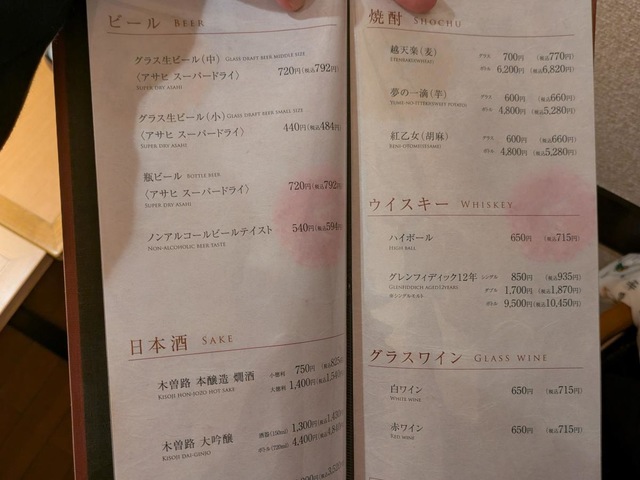 ビール BEER
グラス生ビール(中) GLASS DRAFT BEER MIDDLE SIZE
〈アサヒ スーパードライ〉 720円(税込792円)
SUPER DRY ASAHI
グラス生ビール(小) GLASS DRAFT BEER SMALL SIZE
〈アサヒ スーパードライ〉 440円(税込484円)
SUPER DRY ASAHI
瓶ビール BOTTLE BEER
〈アサヒ スーパードライ〉 720円(税込792円)
SUPER DRY ASAHI
ノンアルコールビールテイスト 540円(税込594円)
NON-ALCOHOLIC BEER TASTE
日本酒 SAKE
木曽路 本醸造 燗酒 小徳利 750円(税込825円)
KISOJI HON-JOZO HOT SAKE 大徳利 1,400円(税込1,540円)
木曽路 大吟醸 酒器(150ml) 1,300円(税込1,430円)
KISOJI DAI-GINJO ボトル(720ml) 4,400円(税込4,840円)
焼酎 SHOCHU
越天楽(麦) グラス 700円 (税込770円)
ETENRAKU(WHEAT) ボトル 6,200円 (税込6,820円)
夢の一滴(芋) グラス 600円 (税込660円)
YUME-NO-ITTEKI(SWEET POTATO) ボトル 4,800円 (税込5,280円)
紅乙女(胡麻) グラス 600円 (税込660円)
BENI-OTOME(SESAME) ボトル 4,800円 (税込5,280円)
ウイスキー WHISKEY
ハイボール 650円 (税込715円)
HIGH BALL
グレンフィディック12年 シングル 850円 (税込935円)
GLENFIDDICH AGED12YEARS ダブル 1,700円 (税込1,870円)
※シングルモルト ボトル 9,500円(税込10,450円)
グラスワイン GLASS WINE
白ワイン 650円 (税込715円)
WHITE WINE
赤ワイン 650円 (税込715円)
RED WINE